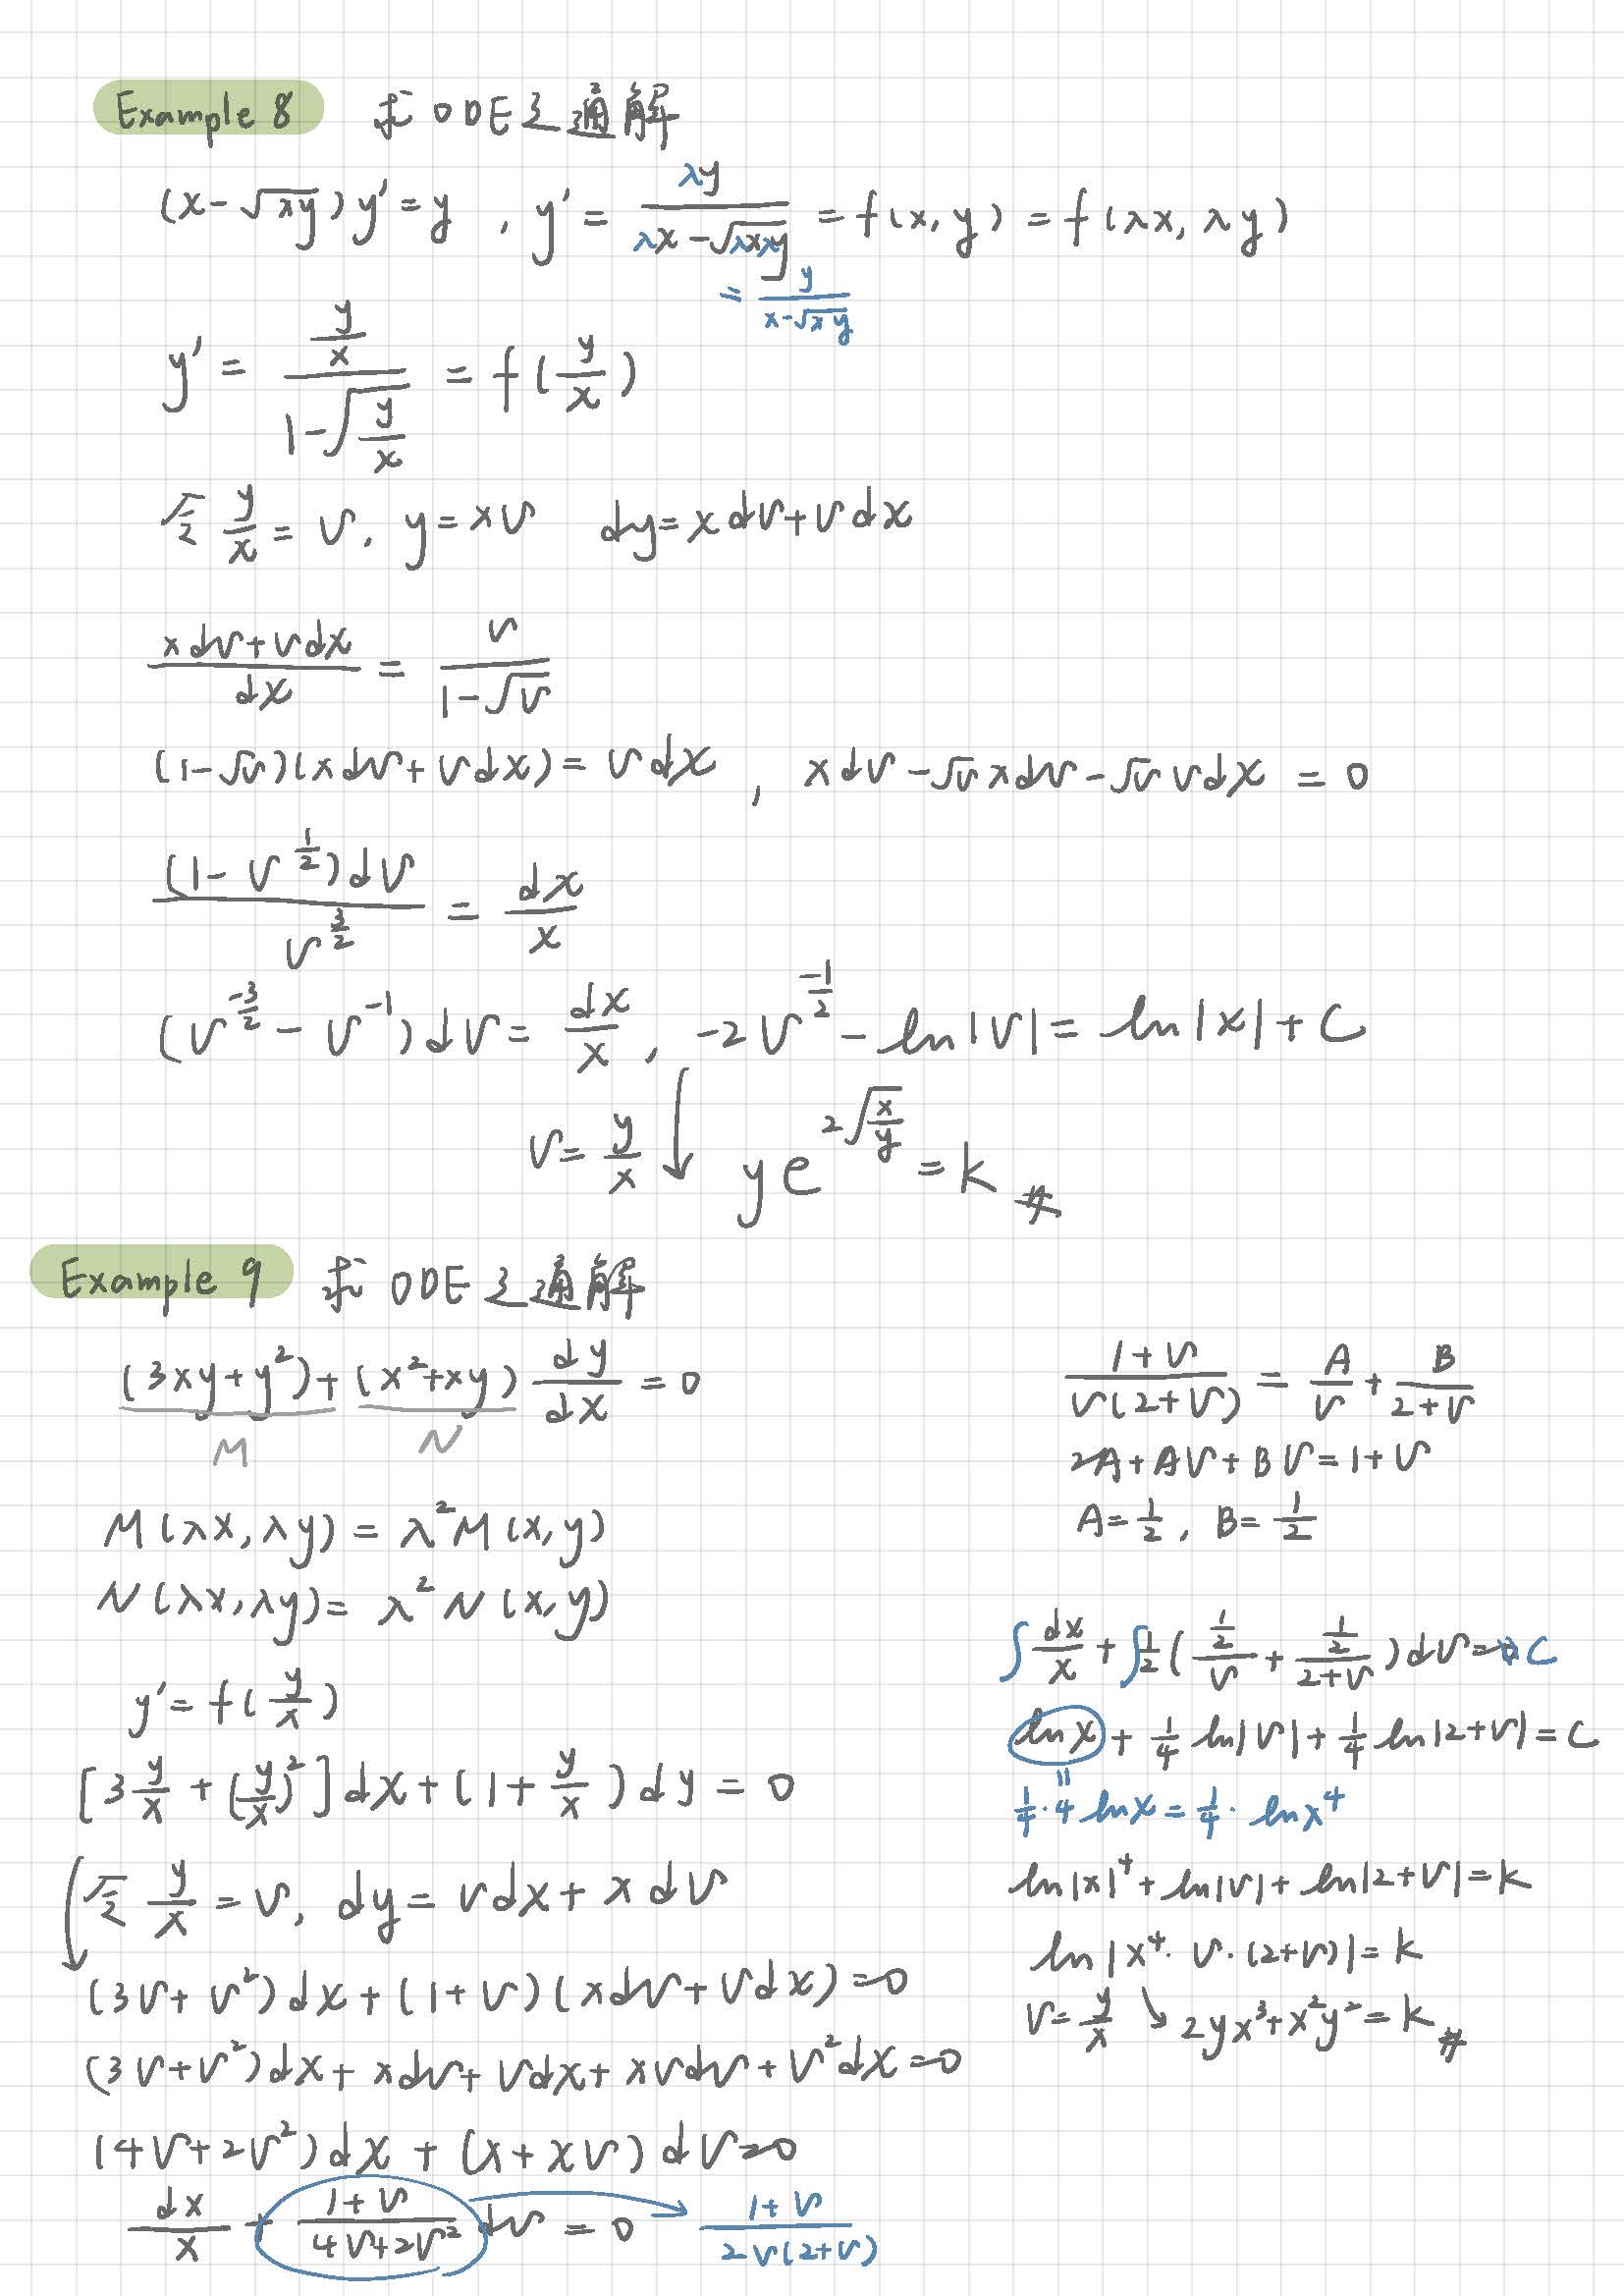 Example 8 求 ODE 之通解
(x-√(xy)) y' = y , y' = λy/(λx-√(λxλy)) = f(x, y) = f(λx, λy)
= y/(x-√(xy))
y' = (y/x)/(1-√(y/x)) = f(y/x)
令 y/x = v, y = xv dy = x dv + v dx
(x dv + v dx)/dx = v/(1-√v)
(1-√v)(x dv + v dx) = v dx , x dv - √v x dv - √v v dx = 0
(1 - v^(1/2)) dv / v^(3/2) = dx/x
(v^(-3/2) - v^(-1)) dv = dx/x , -2v^(-1/2) - ln|v| = ln|x| + C
v = y/x ↓ y e^(2√(x/y)) = k #
Example 9 求 ODE 之通解
(3xy+y²) + (x²+xy) dy/dx = 0
M N
M(λx, λy) = λ² M(x, y)
N(λx, λy) = λ² N(x, y)
y' = f(y/x)
[3 y/x + (y/x)²] dx + (1 + y/x) dy = 0
令 y/x = v, dy = v dx + x dv
(3v + v²) dx + (1+v)(x dv + v dx) = 0
(3v + v²) dx + x dv + v dx + xv dv + v² dx = 0
(4v + 2v²) dx + (x + xv) dv = 0
dx/x + (1+v)/(4v+2v²) dv = 0 → (1+v)/(2v(2+v))
(1+v)/(v(2+v)) = A/v + B/(2+v)
2A + Av + Bv = 1+v
A = 1/2 , B = 1/2
∫ dx/x + ∫ 1/2 ((1/2)/v + (1/2)/(2+v)) dv = C
ln x + 1/4 ln|v| + 1/4 ln|2+v| = C
1/4 · 4 ln x = 1/4 · ln x⁴
ln|x|⁴ + ln|v| + ln|2+v| = k
ln|x⁴ · v · (2+v)| = k
v = y/x ↘ 2yx³ + x²y² = k #